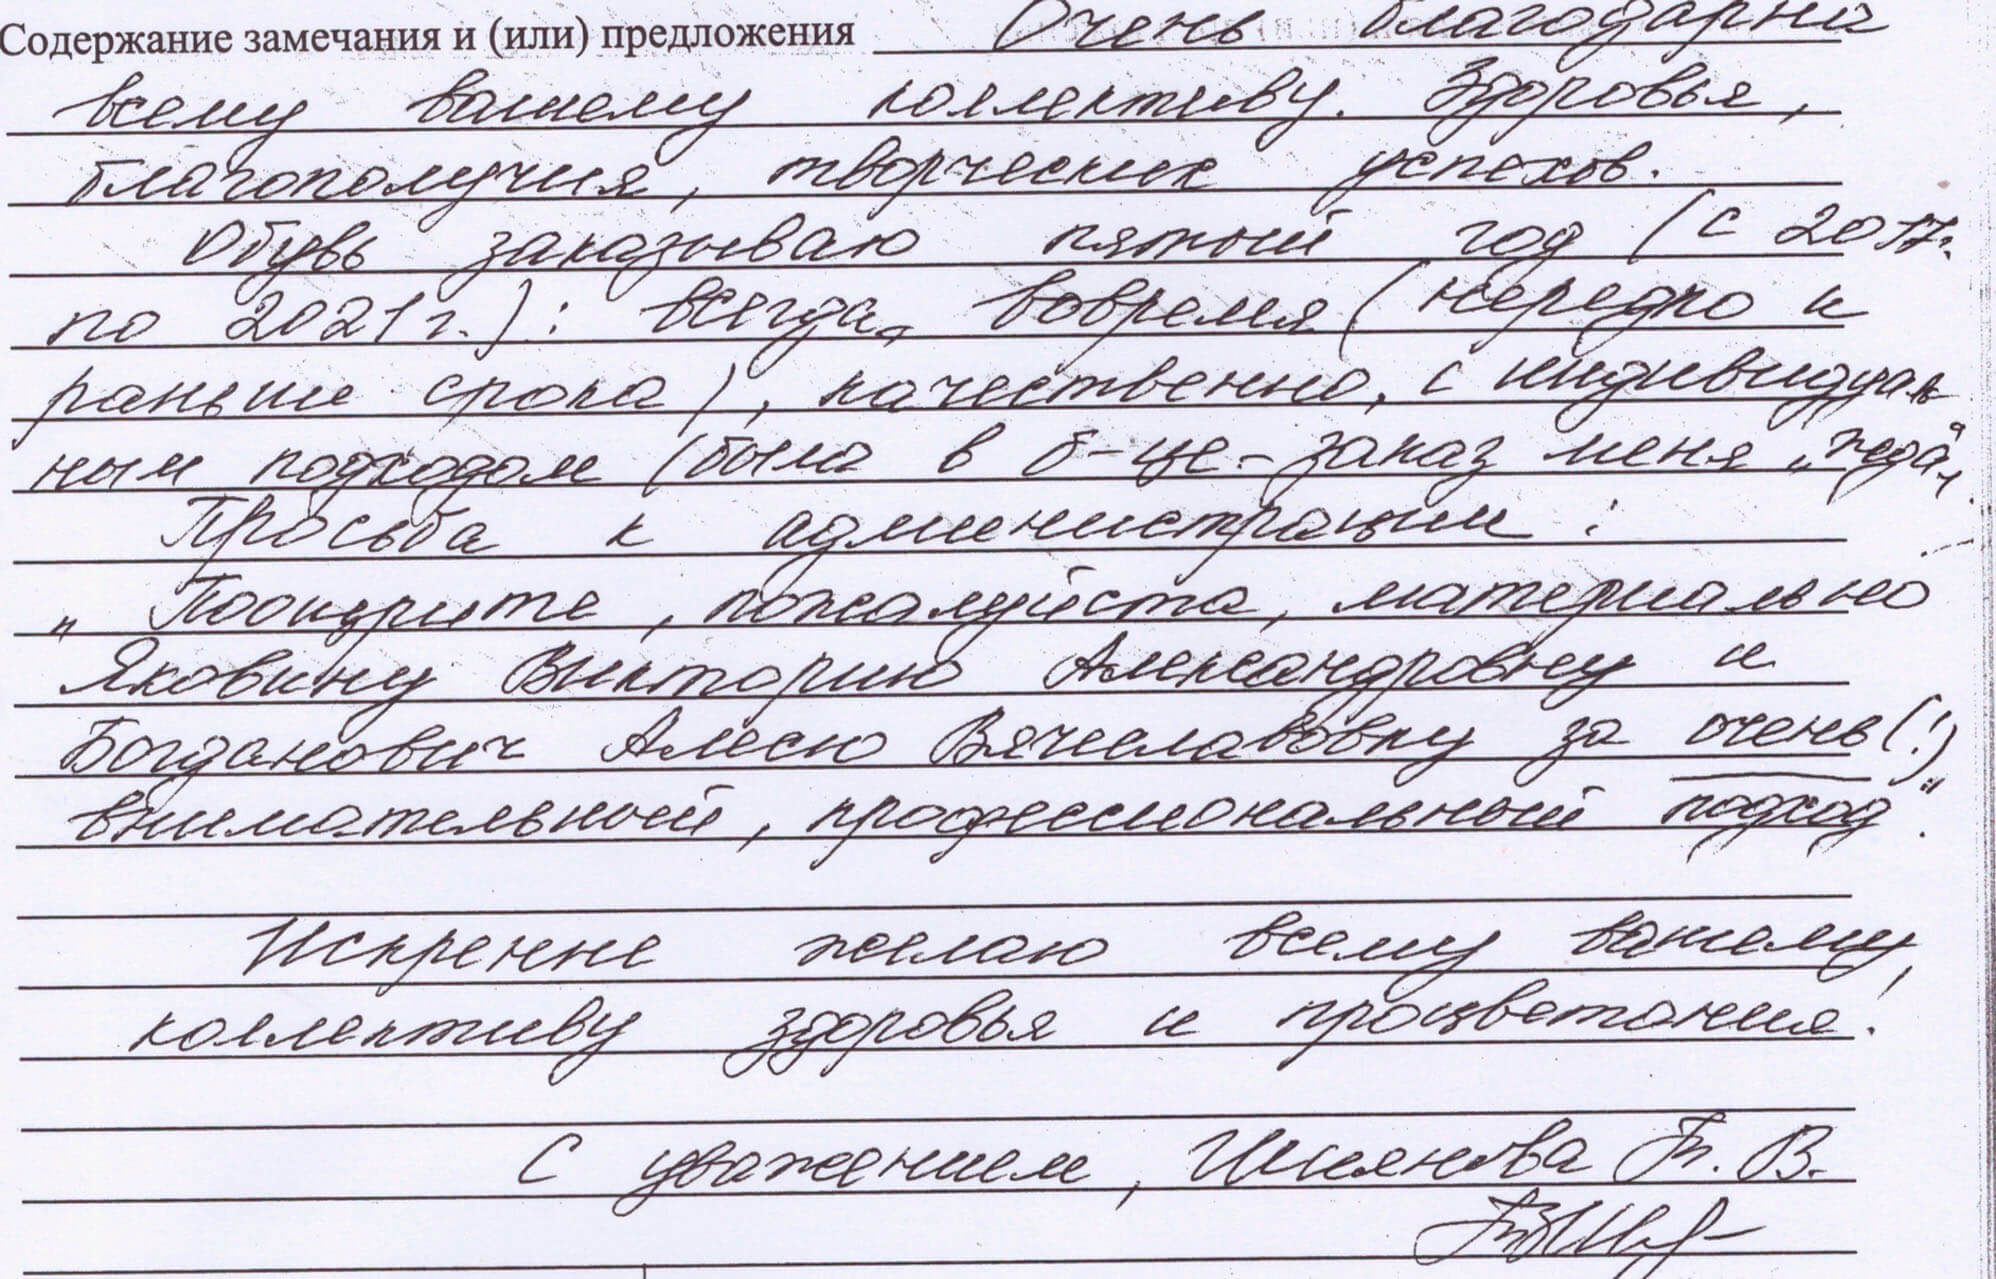 Содержание замечания и (или) предложения Очень благодарна
всему вашему коллективу. Здоровья,
благополучия, творческих успехов.
Обувь заказываю пятый год (с 2017г.
по 2021г.): всегда, вовремя (нередко и
раньше срока), качественно, с индивидуаль
ным подходом (была в б-це - заказ меня „ждал“).
Просьба к администрации:
„Поощрите, пожалуйста, материально
Яковину Викторию Александровну и
Богданович Алесю Вячеславовну за очень (!)
внимательный, профессиональный подход“.
Искренне желаю всему вашему
коллективу здоровья и процветания!
С уважением, В.